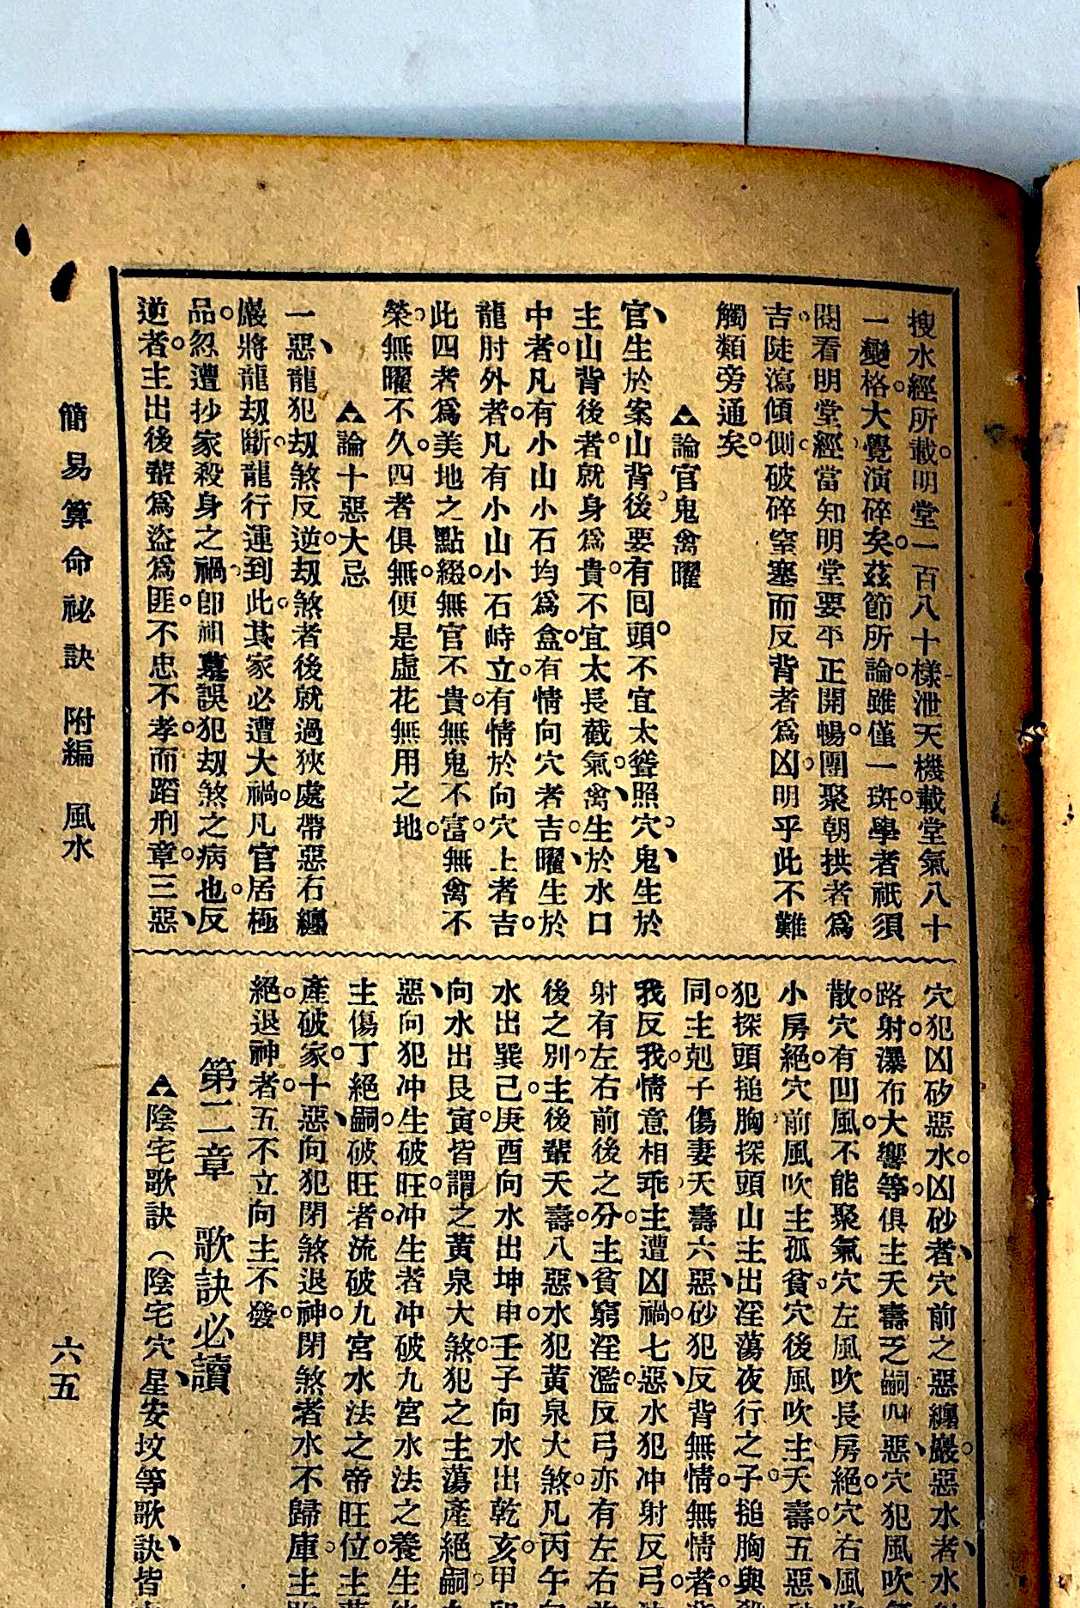 搜水經所載明堂一百八十樣泄天機載堂氣八十
一變格大覺演碎矣茲節所論雖僅一斑學者祇須
閱看明堂經當知明堂要平正開暢團聚朝拱者爲
吉陡瀉傾側破碎窒塞而反背者爲凶明乎此不難
觸類旁通矣
▲論官鬼禽曜
官生於案山背後要有回頭不宜太聳照穴鬼生於
主山背後者就身爲貴不宜太長截氣禽生於水口
中者凡有小山小石均爲盒有情向穴者吉曜生於
龍肘外者凡有小山小石峙立有情於向穴上者吉
此四者爲美地之點綴無官不貴無鬼不富無禽不
榮無曜不久四者俱無便是虛花無用之地
▲論十惡大忌
一惡龍犯刼煞反逆刼煞者後就過狹處帶惡石巉
巖將龍刼斷龍行運到此其家必遭大禍凡官居極
品忽遭抄家殺身之禍卽祖墓誤犯刼煞之病也反
逆者主出後輩爲盜爲匪不忠不孝而蹈刑章三惡
穴犯凶砂惡水凶砂者穴前之惡巉巖惡水者水
路射瀑布大響等俱主夭壽乏嗣四惡穴犯風吹
散穴有凹風不能聚氣穴左風吹長房絕穴右風
小房絕穴前風吹主孤貧穴後風吹主夭壽五惡
犯探頭搥胸探頭山主出淫蕩夜行之子搥胸與
同主剋子傷妻夭壽六惡砂犯反背無情無情者
我反我情意相乖主遭凶禍七惡水犯冲射反弓
射有左右前後之分主貧窮淫濫反弓亦有左右
後之別主後輩夭壽八惡水犯黃泉大煞凡丙午
水出巽己庚酉向水出坤申壬子向水出乾亥甲
向水出艮寅皆謂之黃泉大煞犯之主蕩產絕嗣
惡向犯冲生破旺冲生者冲破九宮水法之養生
主傷丁絕嗣破旺者流破九宮水法之帝旺位主
產破家十惡向犯閉煞退神閉煞者水不歸庫主
絕退神者五不立向主不發
第二章 歌訣必讀
▲陰宅歌訣（陰宅穴星安坟等歌訣皆
簡易算命祕訣 附編 風水
六五